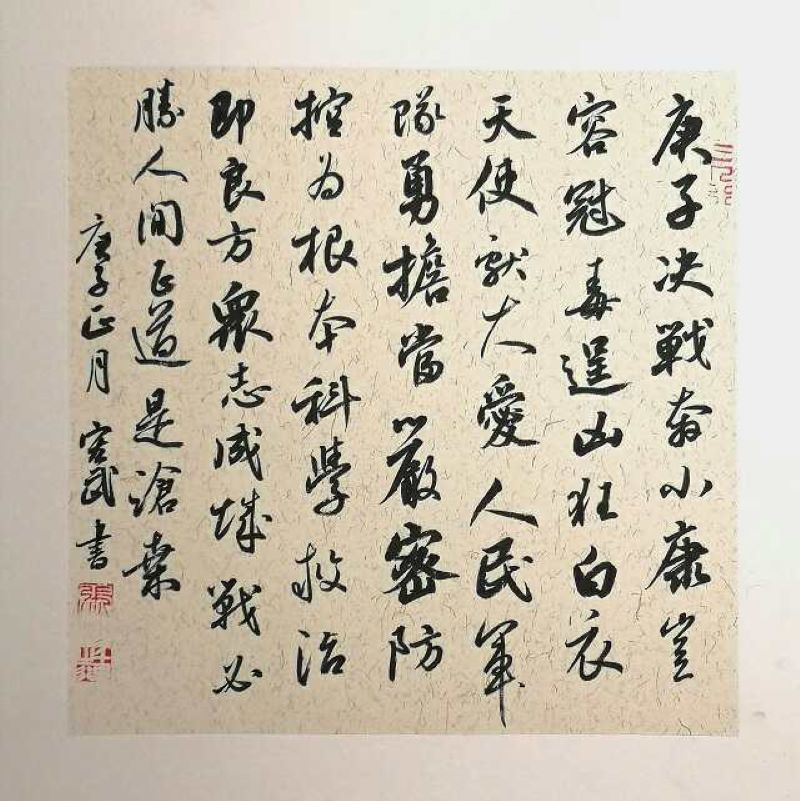 庚子决戰奔小康豈
容冠毒逞凶狂白衣
天使献大愛人民軍
隊勇擔當嚴密防
控为根本科學救治
即良方眾志成城戰必
勝人间正道是滄桒
庚子正月 宪武书